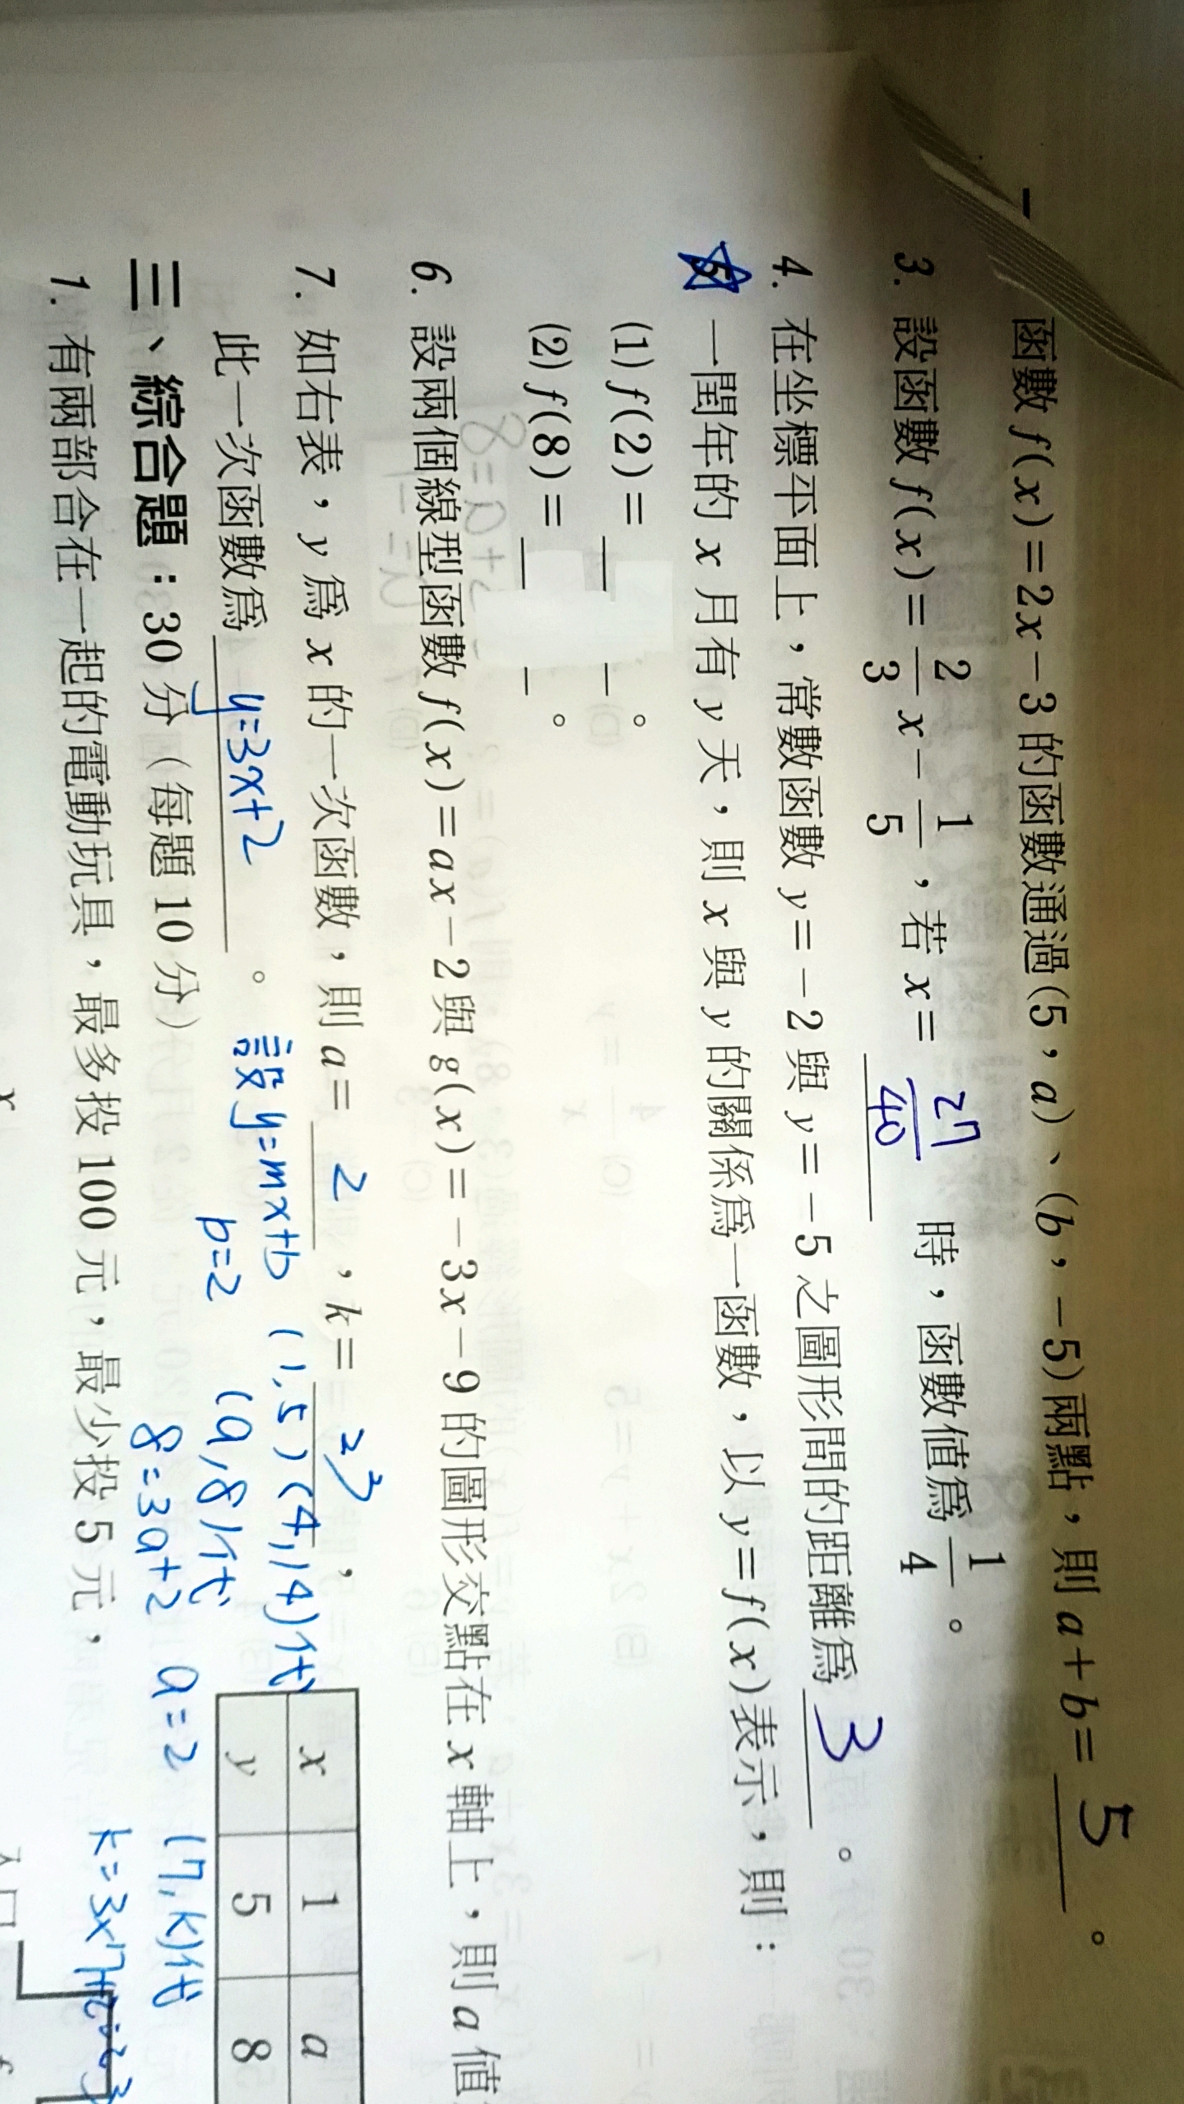 函數 f(x)=2x-3 的函數通過(5，a)、(b，-5)兩點，則 a+b= 5 。
3. 設函數 f(x)=2/3 x-1/5，若 x= 27/40 時，函數值為 1/4。
4. 在坐標平面上，常數函數 y=-2 與 y=-5 之圖形間的距離為 3 。
5 一閏年的 x 月有 y 天，則 x 與 y 的關係為一函數，以 y=f(x)表示，則：
(1) f(2)= 。
(2) f(8)= 。
6. 設兩個線型函數 f(x)=ax-2 與 g(x)=-3x-9 的圖形交點在 x 軸上，則 a 值
7. 如右表，y 為 x 的一次函數，則 a= 2 ，k= 23 ，
此一次函數為 y=3x+2 。
設 y=mx+b (1,5)(4,14)代
b=2 (a,8)代
8=3a+2 a=2 (7,k)代
k=3x7+2=23
x 1 a
y 5 8
三、綜合題：30 分（每題 10 分）
1. 有兩部合在一起的電動玩具，最多投 100 元，最少投 5 元，